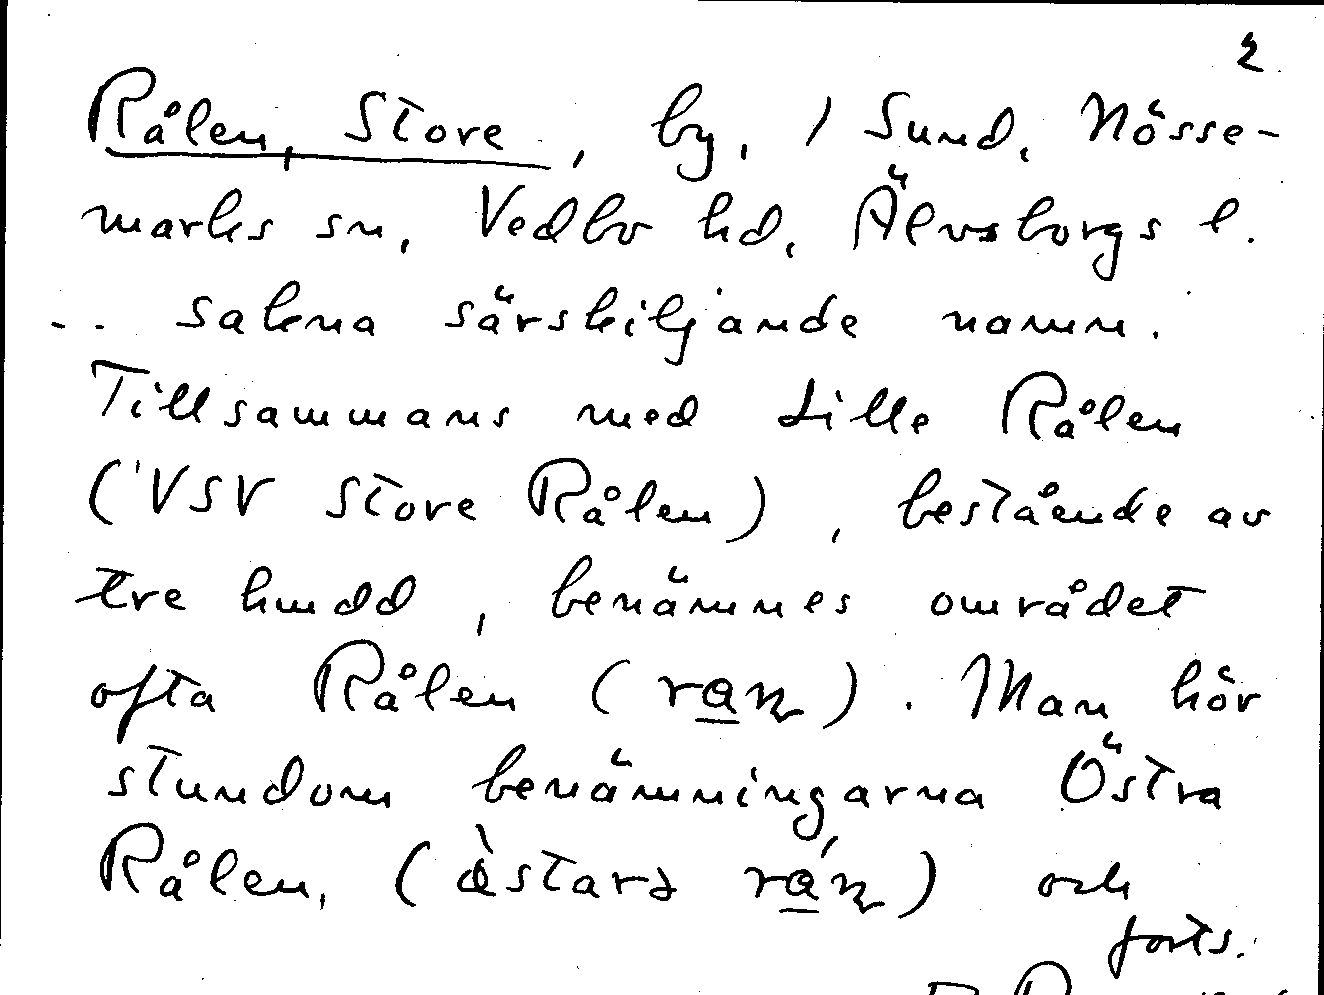 2.
Rålen, Store, by, i Sund, Nösse-
marks sn, Vedbo hd, Älvsborgs l.
... sakna särskiljande namn.
Tillsammans med Lille Rålen
(VSV Store Rålen), bestående av
tre hmdd, benämnes området
ofta Rålen (
). Man hör
stundom benämningarna Östra
Rålen, (
) och
forts.